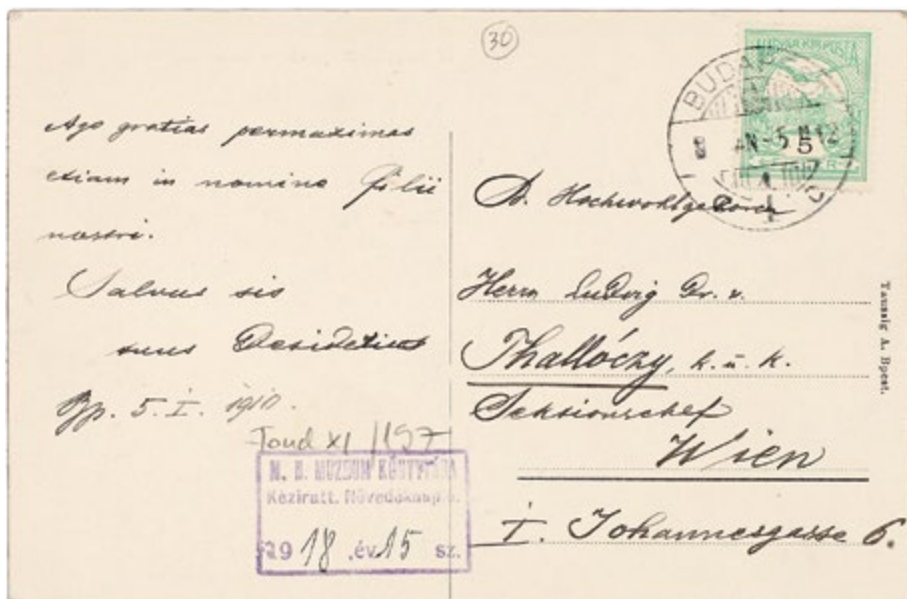 30
MAGYAR KIR. POSTA
BUDAP
AN -5 N12
5
Ago gratias permaximas
etiam in nomine filii
nostri.
Salvus sis
tuus Desiderius
Bp. 5. I. 1910.
Fond XI/197
M. N. MUZEUM KÖNYVTÁRA
Kéziratt. Növedéknapló.
1918 .év 15 sz.
S. Hochwohlgeboren
Herrn Ludvig Dr. v.
Thallóczy, k. u. k.
Sektionschef
Wien
I. Johannesgasse 6.
Taussig A. Bpest.